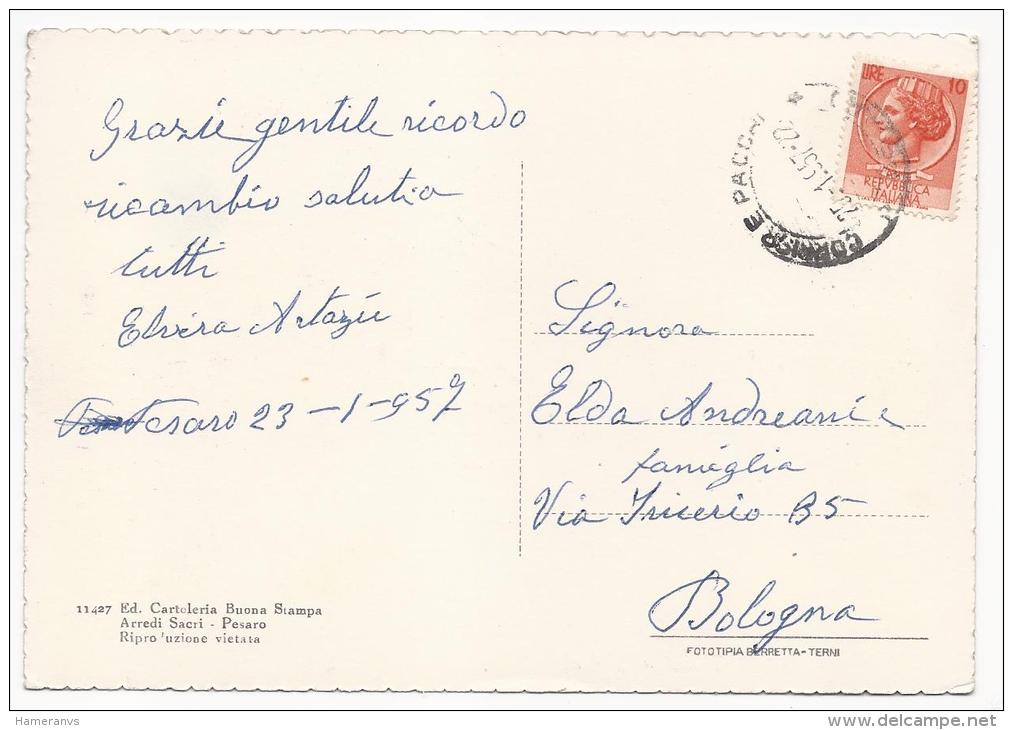 Grazie gentile ricordo
ricambio saluti a
tutti
Elvira
Pesaro 23-1-957
LIRE 10
REPVBBLICA
ITALIANA
CORRISP E PACCHI
Signora
Elda Andreani e
famiglia
Via 85
Bologna
11427 Ed. Cartoleria Buona Stampa
Arredi Sacri - Pesaro
Ripro'uzione vietata
FOTOTIPIA BERRETTA-TERNI
Hameranvs
www.delcampe.net